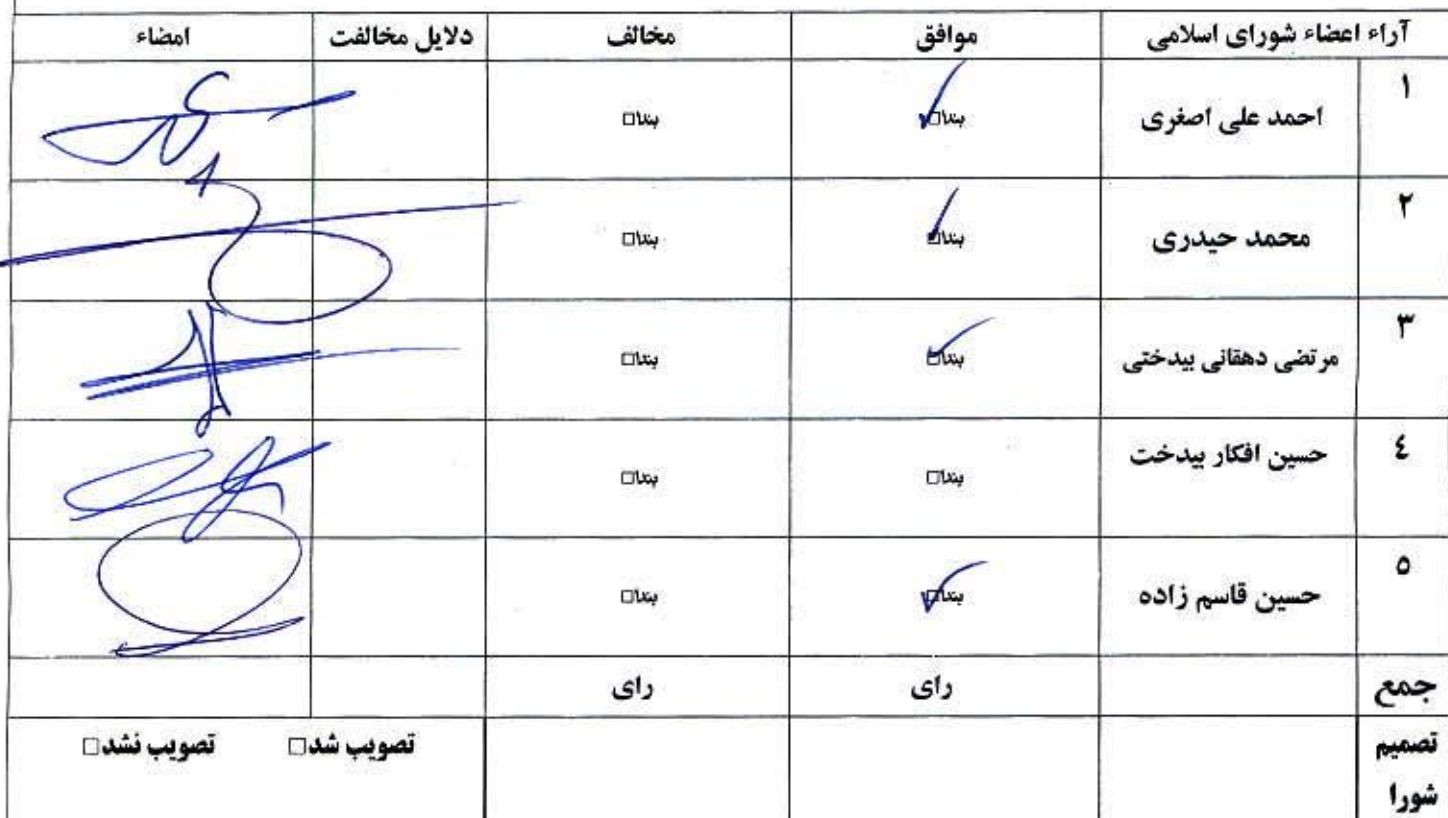 آراء اعضاء شورای اسلامی موافق مخالف دلایل مخالفت امضاء
۱ احمد علی اصغری بند۱□ بند۱□
۲ محمد حیدری بند۱□ بند۱□
۳ مرتضی دهقانی بیدختی بند۱□ بند۱□
٤ حسین افکار بیدخت بند۱□ بند۱□
۵ حسین قاسم زاده بند۱□ بند۱□
جمع رای رای
تصمیم شورا تصویب شد□ تصویب نشد□